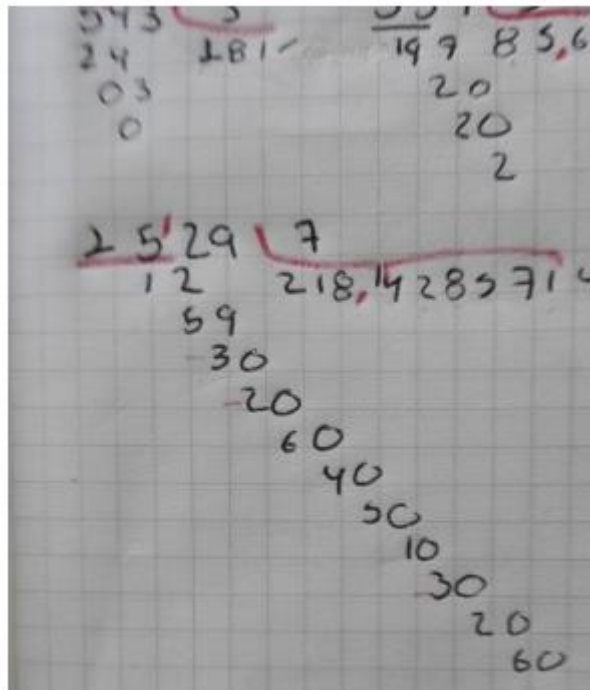 543
24 181
03
0
19 9 85,6
20
20
2
2 5'29 7
12 218,1428571
59
30
20
60
40
50
10
30
20
60